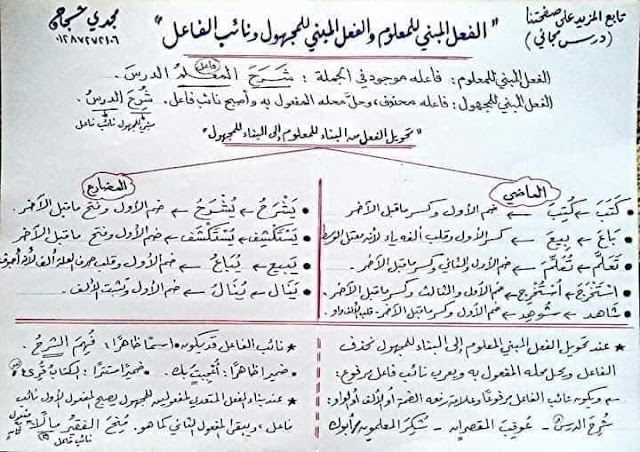 تابع المزيد على صفحتنا
(درس مجاني)
مجدي شجاعي
"الفعل المبني للمعلوم والفعل المبني للمجهول ونائب الفاعل"
الفعل المبني للمعلوم: فاعله موجود في الجملة : شَرَحَ المعلمُ الدرسَ.
فاعل
الفعل المبني للمجهول: فاعله محذوف، وحلَّ محله المفعول به وأصبح نائب فاعل. شُرِحَ الدرسُ.
مبني للمجهول نائب فاعل
"تحويل الفعل من البناء للمعلوم إلى البناء للمجهول"
الماضي
• كَتَبَ ← كُتِبَ ← ضم الأول وكسر ماقبل الآخر
• بَاعَ ← بِيعَ ← كسر الأول وقلب ألفه ياء لأنه معتل الوسط
• تَعَلَّمَ ← تُعُلِّمَ ← ضم الأول والثاني وكسر ماقبل الآخر.
• اسْتَخْرَجَ ← اُسْتُخْرِجَ ← ضم الأول والثالث وكسر ماقبل الآخر.
• شَاهَدَ ← شُوهِدَ ← ضم الأول وكسر ماقبل الآخر. قلب الألف واو
المضارع
• يَشْرَحُ ← يُشْرَحُ ← ضم الأول وفتح ماقبل الآخر.
• يَسْتَكْشِفُ ← يُسْتَكْشَفُ ← ضم الأول وفتح ماقبل الآخر
• يَبِيعُ ← يُبَاعُ ← ضم الأول وقلب حرف العلة ألف
• يَنَالُ ← يُنَالُ ← ضم الأول وتثبت الألف.
★ عند تحويل الفعل المبني للمعلوم إلى البناء للمجهول نحذف
الفاعل ويحل محله المفعول به ويعرب نائب فاعل مرفوع:
- ويكون نائب الفاعل مرفوعًا وعلامة رفعه الضمة أو الألف أو الواو:
شُرِحَ الدرسُ - عُوقِبَ المقصران - شُكِرَ المعلمون / أبوك
★ نائب الفاعل قد يكون: اسمًا ظاهرًا: فُهِمَ الشرحُ.
ضميرًا ظاهرًا: أُعْجِبْتُ بك. ضميرًا مستترًا: الكتابُ قُرِئَ
★ عند بناء الفعل المتعدي لمفعولين للمجهول يصبح المفعول الأول نائب
فاعل، ويبقى المفعول الثاني كما هو. مُنِحَ الفقيرُ مالًا.
نائب فاعل